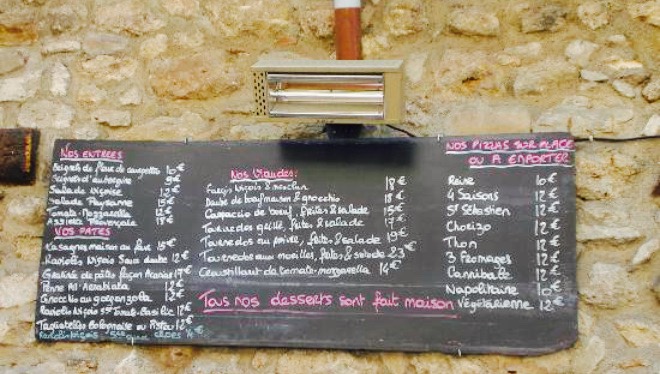 Nos Entrees
Beignets de fleur de courgettes 10€
d'aubergine 8€
Salade Niçoise 12€
Salade Paysanne 12€
Tomate Mozzarella 12€
Assiette Provençale 18€
Vos Pates
Lasagnes maison au four 15€
Raviolis Niçois Sauce daube 12€
de pâtes façon 17€
Penne All Arrabiata 12€
Gnocchio au gorgonzola 12€
Raviolis Niçois Tomate Basilic 12€
Tagliatelles Bolognaise ou Pistou 12€
Nos Viandes:
Farçis Niçois & mesclun 18€
Daube de boeuf maison & gnocchio 18€
Carpaccio de boeuf, frites & salade 15€
Tournedos grillé, frites & salade 17€
Tournedos au poivre, frites & salade 19€
Tournedos aux morilles, frites & salade 23€
Croustillant de tomate mozzarella 14€
Tous nos desserts sont fait maison
Nos Pizzas sur place
ou a emporter
Reine 10€
4 Saisons 12€
St Sébastien 12€
Chorizo 12€
Thon 12€
3 Fromages 12€
Cannibale 12€
Napolitaine 10€
Végétarienne 12€